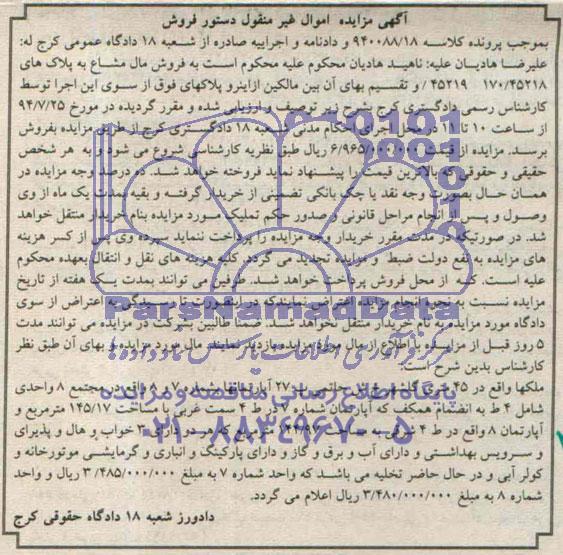 آگهی مزایده اموال غیر منقول دستور فروش
بموجب پرونده کلاسه ۹۴۰۰۸۸/۱۸ و دادنامه و اجراییه صادره از شعبه ۱۸ دادگاه عمومی کرج له:
علیرضا هادیان علیه: ناهید هادیان محکوم علیه محکوم است به فروش مال مشاع به پلاک های
۱۷۰/۴۵۲۱۸ ۴۵۲۱۹ / و تقسیم بهای آن بین مالکین ازاینرو پلاکهای فوق از سوی این اجرا توسط
کارشناس رسمی دادگستری کرج بشرح زیر توصیف و ارزیابی شده و مقرر گردیده در مورخ ۹۴/۷/۲۵
از ساعت ۱۰ تا ۱۱ در محل اجرای احکام مدنی شعبه ۱۸ دادگستری کرج از طریق مزایده بفروش
برسد. مزایده از قیمت ۶/۹۶۵/۰۰۰/۰۰۰ ریال طبق نظریه کارشناسی شروع می شود و به هر شخص
حقیقی و حقوقی که بالاترین قیمت را پیشنهاد نماید فروخته خواهد شد. ده درصد وجه مزایده در
همان حال بصورت وجه نقد یا چک بانکی تضمینی از خریدار گرفته و بقیه بمدت یک ماه از وی
وصول و پس از انجام مراحل قانونی و صدور حکم تملیک مورد مزایده بنام خریدار منتقل خواهد
شد. در صورتیکه در مدت مقرر خریدار وجه مزایده را پرداخت ننماید سپرده وی پس از کسر هزینه
های مزایده به نفع دولت ضبط و مزایده تجدید می گردد. کلیه هزینه های نقل و انتقال بعهده محکوم
علیه است. که از محل فروش پرداخت خواهد شد. طرفین می توانند بمدت یک هفته از تاریخ
مزایده نسبت به نحوه انجام مزایده اعتراض نمایند که در اینصورت تا رسیدگی به اعتراض از سوی
دادگاه مورد مزایده به نام خریدار منتقل نخواهد شد. ضمنا طالبین بشرکت در مزایده می توانند مدت
۵ روز قبل از مزایده با اطلاع از مال مورد مزایده بازدید نمایند. مال مورد مزایده و بهای آن طبق نظر
کارشناس بدین شرح است:
ملکها واقع در ۴۵ متری گلشهر خ حاتمی پ ۲۷ آپارتمانها شماره ۷ و ۸ واقع در مجتمع ۸ واحدی
شامل ۴ ط به انضمام همکف که آپارتمان شماره ۷ در ط ۴ سمت غربی با مساحت ۱۴۵/۱۷ مترمربع و
آپارتمان ۸ واقع در ط ۴ شرقی به مساحت ۱۴۴/۹۷ مترمربع که هر دو دارای ۲ خواب و هال و پذیرای
و سرویس بهداشتی و دارای آب و برق و گاز و دارای پارکینگ و انباری و گرمایشی موتورخانه و
کولر آبی و در حال حاضر تخلیه می باشد که واحد شماره ۷ به مبلغ ۳/۴۸۵/۰۰۰/۰۰۰ ریال و واحد
شماره ۸ به مبلغ ۳/۴۸۰/۰۰۰/۰۰۰ ریال اعلام می گردد.
دادورز شعبه ۱۸ دادگاه حقوقی کرج
ParsNamadData
مرکز فرآوری اطلاعات پارس نماد داده ها
پایگاه اطلاع رسانی مناقصه و مزایده
۰۲۱-۸۸۳۴۹۶۷۰-۵